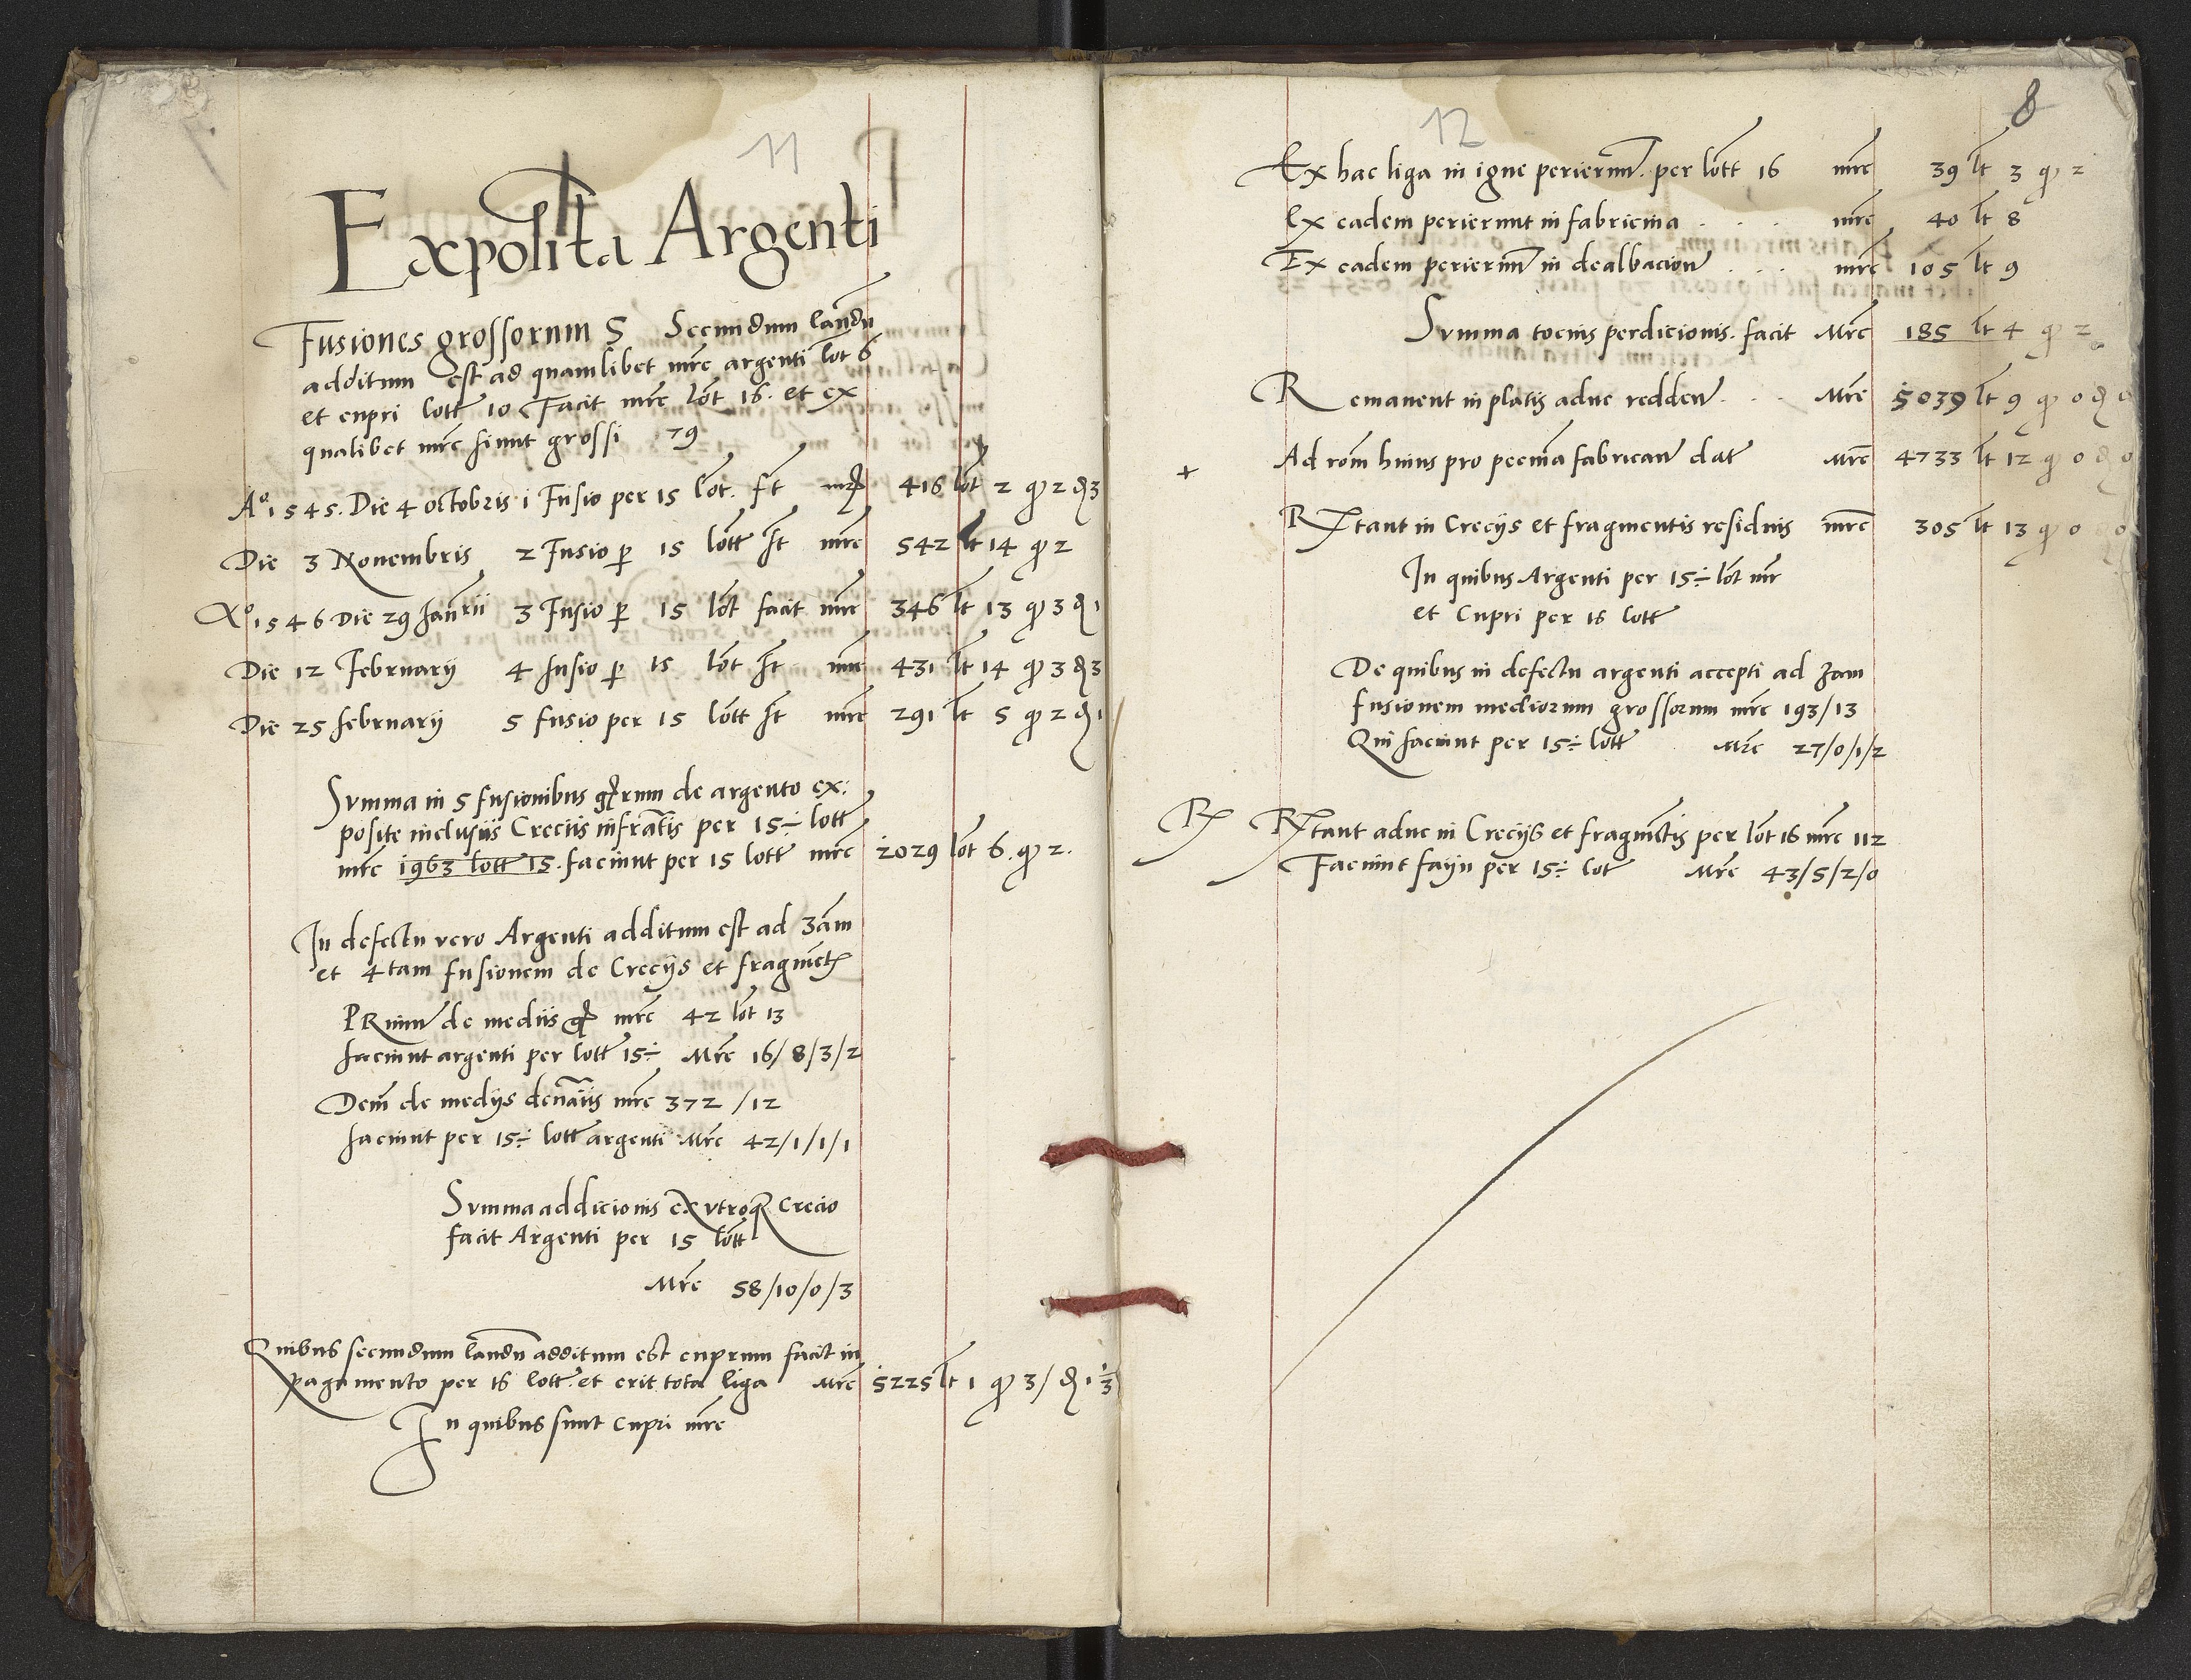 11
Expolita Argenti
Fusiones grossorum 5 Secundum landu
additum est ad quamlibet mrc argenti lot 6
et cupri lott 10 Facit mrc lott 16. et ex
qualibet mrc fiunt grossi 79
Aº 1545. Die 4 octobris 1 Fusio per 15 lott. ft mrc 416 lott 2 qº 2 ₰ 3
Die 3 Novembris 2 Fusio p 15 lott ft mrc 542 lt 14 qº 2
Aº 1546 Die 29 Januarii 3 Fusio p 15 lott facit mrc 346 lt 13 qº 3 ₰ 1
Die 12 February 4 fusio p 15 lott ft mrc 431 lt 14 qº 3 ₰ 3
Die 25 february 5 fusio per 15 lott ft mrc 291 lt 5 qº 2 ₰ 1
Summa in 5 fusionibus grorum de argento ex:
posite inclusiis Creciis infratis per 15 ÷ lott
mrc 1963 lott 15. faciunt per 15 lott mrc 2029 lott 6. qº 2.
In defectu vero Argenti additum est ad 3am
et 4tam fusionem de Crecijs et fragmet
PRimu de mediis gr mrc 42 lott 13
faciunt argenti per lott 15 ÷ Mrc 16/8/3/2
Dem de medijs denariis mrc 372/12
faciunt per 15 ÷ lott argenti Mrc 42/1/1/1
Summa addicionis ex utroq Crecio
facit Argenti per 15 lott
Mrc 58/10/0/3
Quibus secundum landu additum est cuprum facit in
pagamento per 16 lott. et erit tota liga Mrc 5225 lt 1 qº 3/ ₰ 1 1/3
In quibus sunt cupri mrc
12
8
Ex hac liga in igne perierunt. per lott 16 mrc 39 lt 3 qº 2
Ex eadem perierunt in fabricina . . . mrc 40 lt 8
Ex eadem perierunt in dealbacion . . . mrc 105 lt 9
Summa tocius perdicionis. facit Mrc 185 lt 4 qº 2
Remanent in platis aduc redden . . Mrc 5039 lt 9 qº 0 ₰ 0
+ Ad rom huius pro pecunia fabrican dat Mrc 4733 lt 12 qº 0 ₰ 0
Rxtant in Crecijs et fragmentis residuis mrc 305 lt 13 qº 0 0
In quibus Argenti per 15 ÷ lott mr
et Cupri per 16 lott
De quibus in defectu argenti accepti ad 3am
fusionem mediorum grossorum mrc 193/13
Qui faciunt per 15 ÷ lott Mrc 27/0/1/2
Rx Rxtant aduc in Crecijs et fragmetis per lott 16 mrc 112
Faciunt fayn per 15 ÷ lot Mrc 43/5/2/0